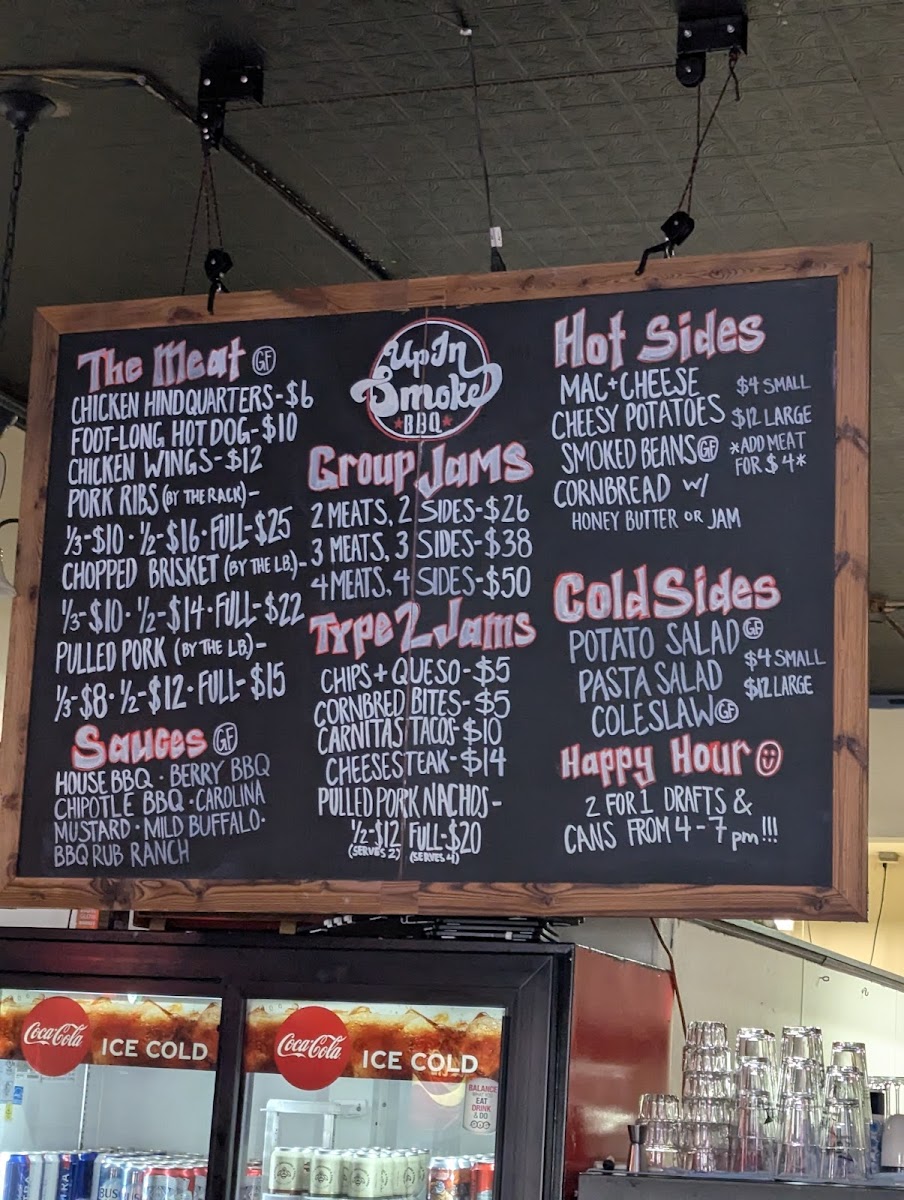 The Meat GF
CHICKEN HINDQUARTERS-$6
FOOT-LONG HOT DOG-$10
CHICKEN WINGS-$12
PORK RIBS (BY THE RACK)-
⅓-$10 · ½-$16 · FULL-$25
CHOPPED BRISKET (BY THE LB.)-
⅓-$10 · ½-$14 · FULL-$22
PULLED PORK (BY THE LB)-
⅓-$8 · ½-$12 · FULL-$15
Sauces GF
HOUSE BBQ · BERRY BBQ
CHIPOTLE BBQ · CAROLINA
MUSTARD · MILD BUFFALO ·
BBQ RUB RANCH
Up In
Smoke
BBQ
Group Jams
2 MEATS, 2 SIDES-$26
3 MEATS, 3 SIDES-$38
4 MEATS, 4 SIDES-$50
Type 2 Jams
CHIPS + QUESO-$5
CORNBRED BITES-$5
CARNITAS TACOS-$10
CHEESESTEAK-$14
PULLED PORK NACHOS-
½-$12 FULL-$20
(SERVES 2) (SERVES 4)
Hot Sides
MAC+CHEESE
CHEESY POTATOES
SMOKED BEANS GF
CORNBREAD w/
HONEY BUTTER OR JAM
$4 SMALL
$12 LARGE
*ADD MEAT
FOR $4*
Cold Sides
POTATO SALAD GF
PASTA SALAD
COLESLAW GF
$4 SMALL
$12 LARGE
Happy Hour
2 FOR 1 DRAFTS &
CANS FROM 4-7 pm!!!
Coca-Cola
ICE COLD
Coca-Cola
ICE COLD
BALANCE
WHAT YOU
EAT
DRINK
& DO